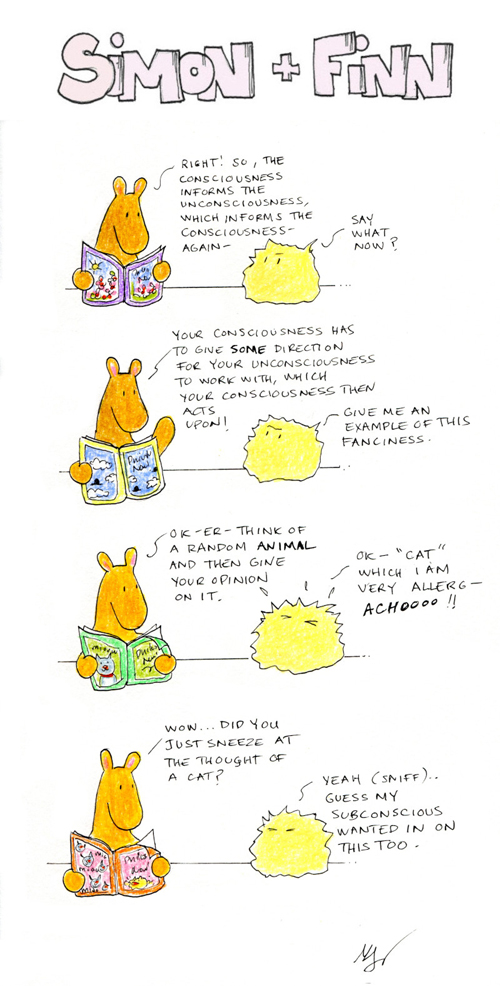 SiMON + FiNN
RIGHT! SO, THE
CONSCIOUSNESS
INFORMS THE
UNCONSCIOUSNESS,
WHICH INFORMS THE
CONSCIOUSNESS-
AGAIN-
SAY
WHAT
NOW?
YOUR CONSCIOUSNESS HAS
TO GIVE SOME DIRECTION
FOR YOUR UNCONSCIOUSNESS
TO WORK WITH, WHICH
YOUR CONSCIOUSNESS THEN
ACTS
UPON!
GIVE ME AN
EXAMPLE OF THIS
FANCINESS.
OK-ER-THINK OF
A RANDOM ANIMAL
AND THEN GIVE
YOUR OPINION
ON IT.
OK- "CAT"
WHICH I AM
VERY ALLERG-
ACHOOOO!!
WOW... DID YOU
JUST SNEEZE AT
THE THOUGHT OF
A CAT?
YEAH (SNIFF)..
GUESS MY
SUBCONSCIOUS
WANTED IN ON
THIS TOO.